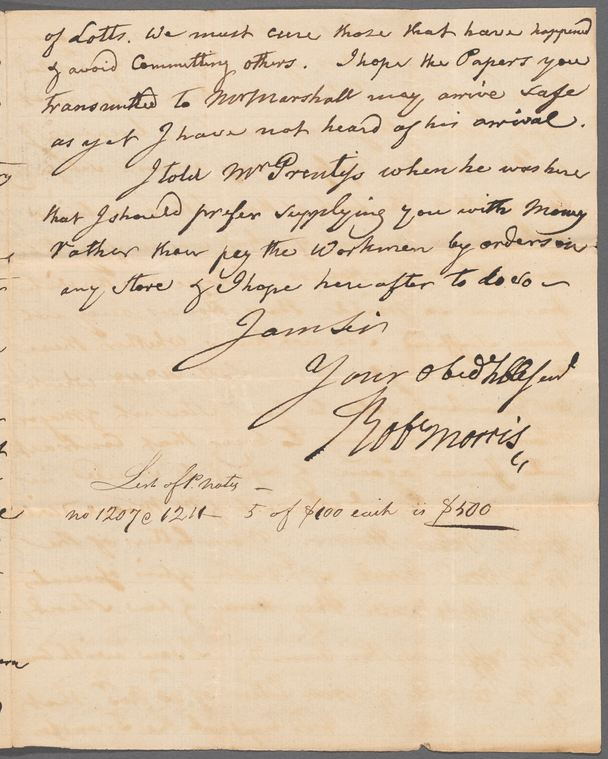 of Lotts. We must cure those that have happened
& avoid Committing others. I hope the Papers you
transmitted to Mr Marshall may arrive safe
as yet I have not heard of his arrival.
I told Mr Prentiss when he was here
that I should prefer supplying you with Money
rather than pay the Workmen by orders on
any Store & I hope hereafter to do so —
I am Sir
Your Obedt hble Servt
Robt Morris
List of P. notes —
no 1207 @ 1211 — 5 of $100 each is $500